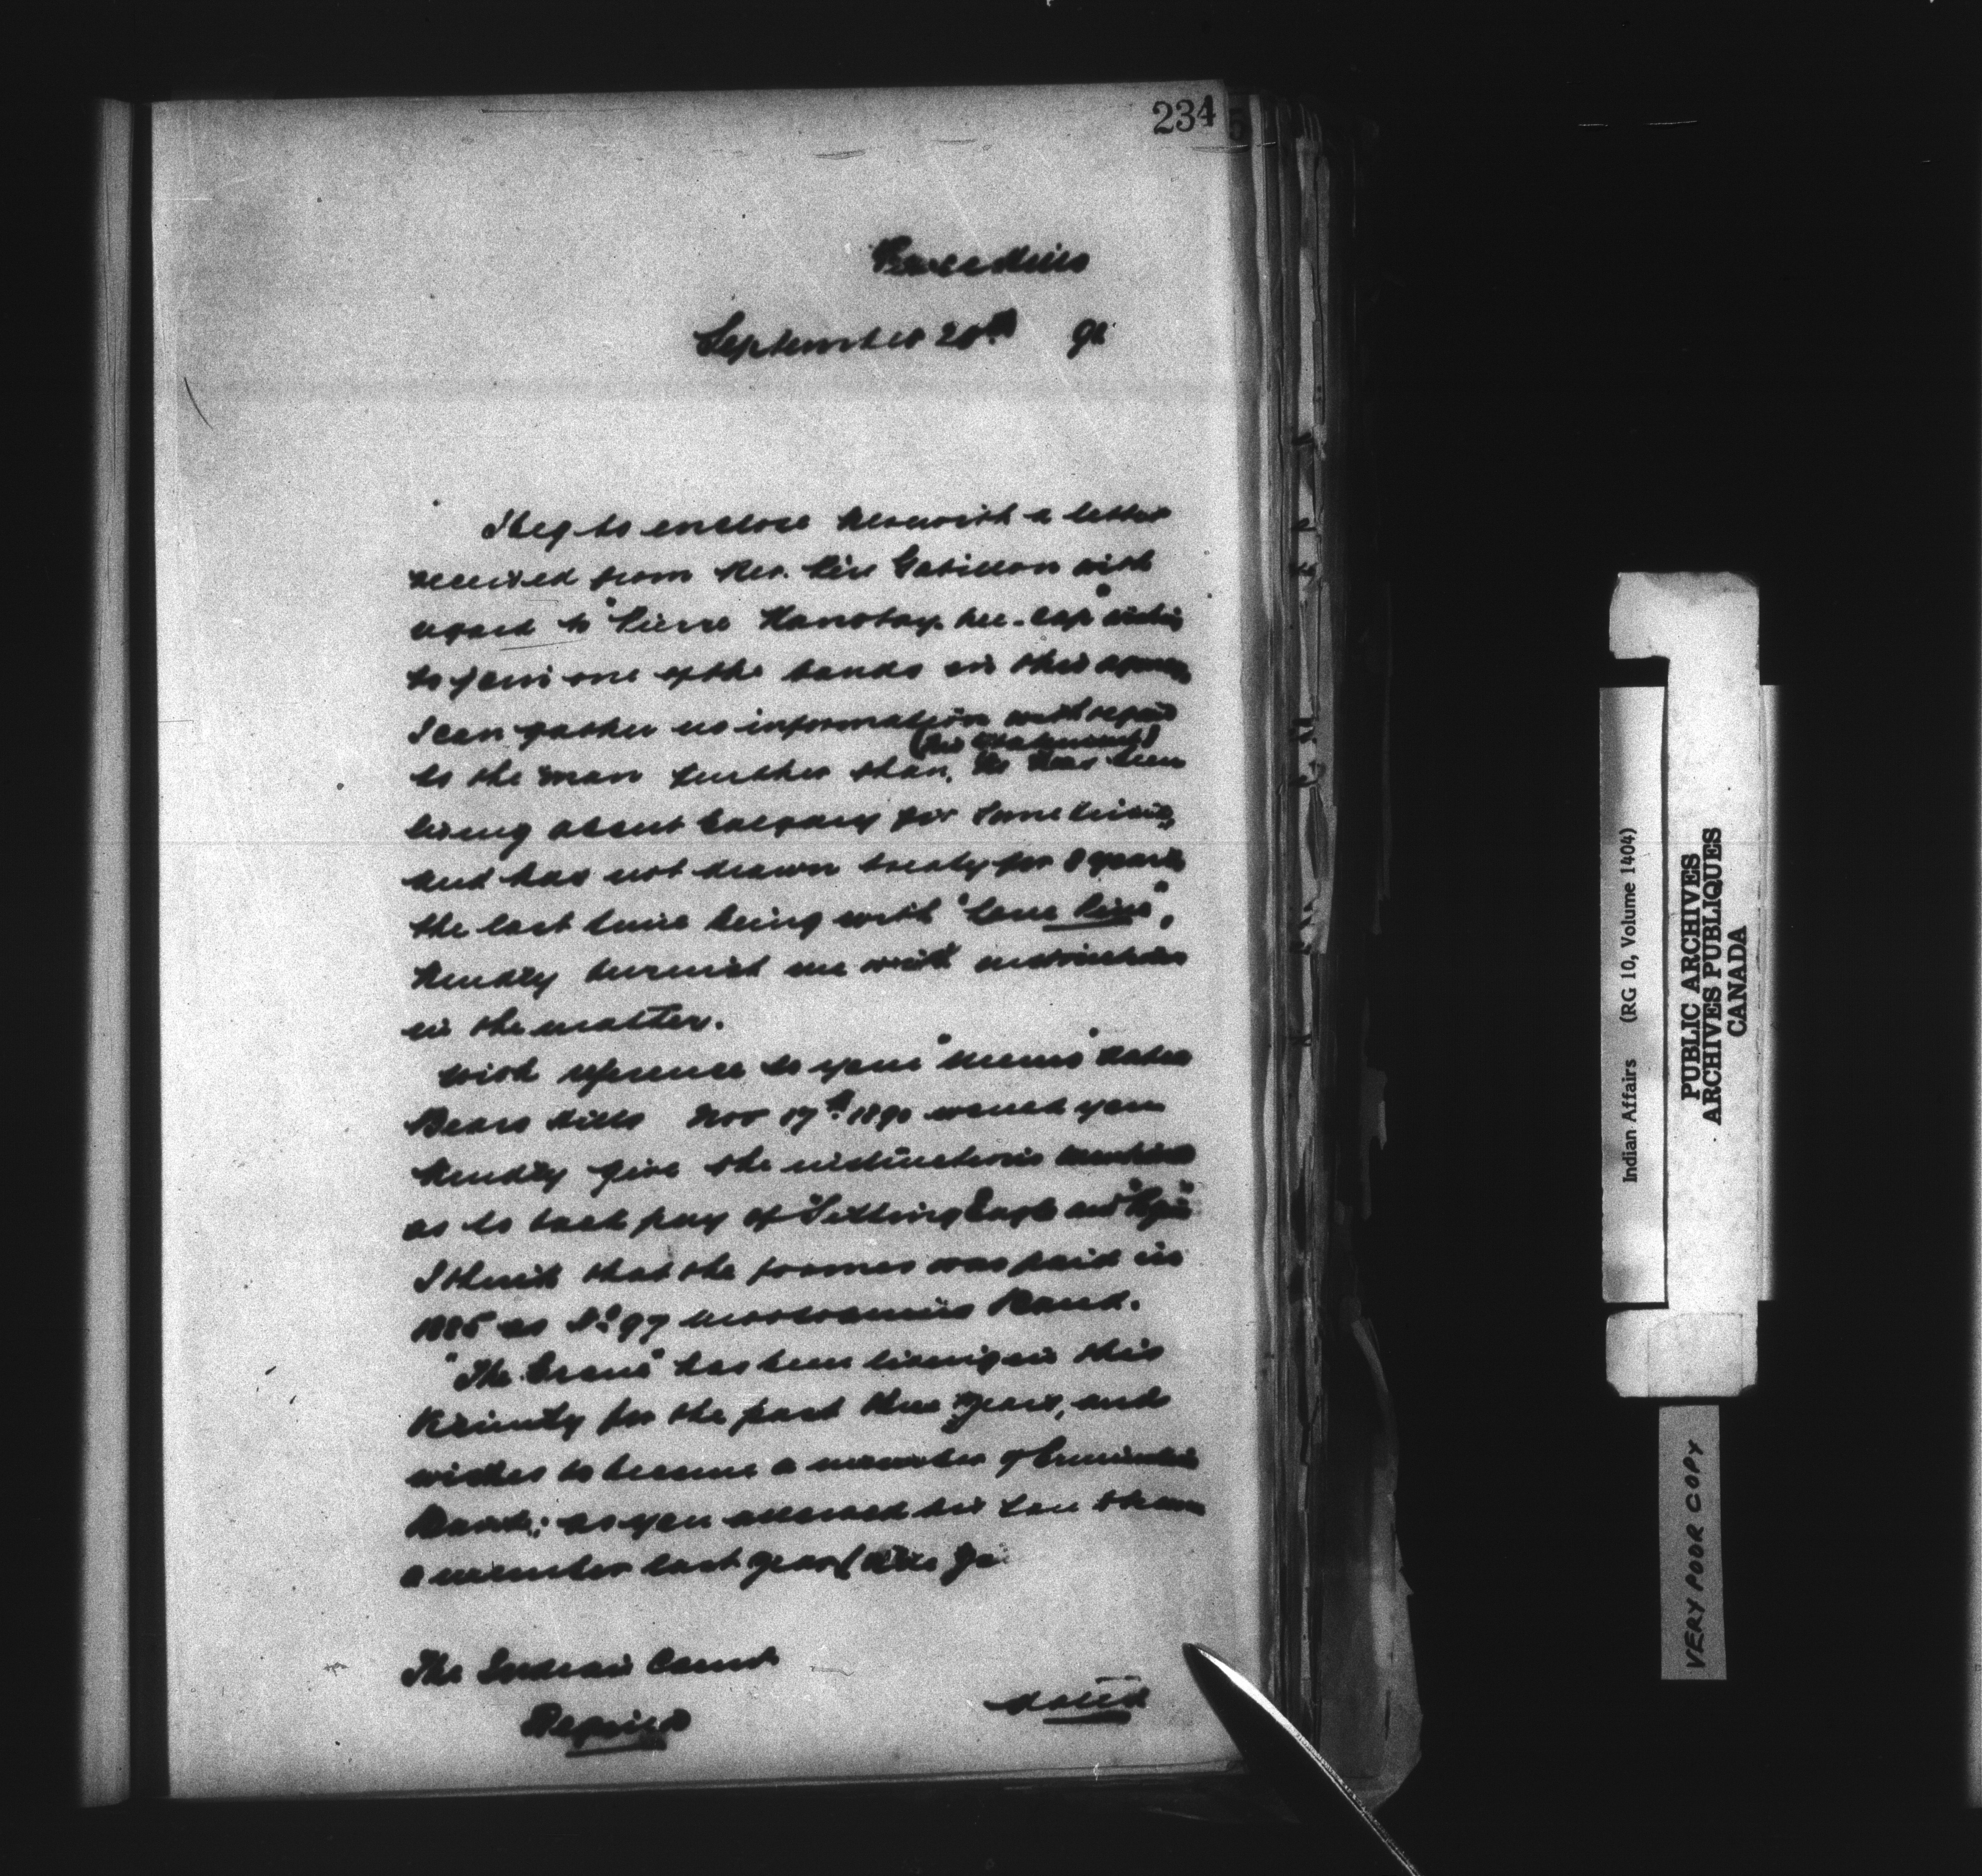 234
5
Bears Hills
September 20th 91
I beg to enclose herewith a letter
received from Rev. Père Gabillon with
regard to "Pierre
to join one of the bands in this agency
I can gather no information with regard
(his statement)
to the man further than, he has been
living about Calgary for some time,
and has not drawn treaty for 8 years
the last time being with "Lone Pine",
Kindly furnish me with instructions
in the matter.
With reference to your "memo" dated
Bears Hills Nov 17th 1890 would you
kindly give the instructions mentioned
as to back pay of "Sitting Eagle and
I think that the former was paid in
1885 as No 97 Band.
"The has been living in this
vicinity for the past three years, and
wishes to become a member of Ermineskin's
Band; as you allowed his son
a member last year
The Indian Comr
Regina
dated
Indian Affairs (RG 10, Volume 1404)
PUBLIC ARCHIVES
ARCHIVES PUBLIQUES
CANADA
VERY POOR COPY